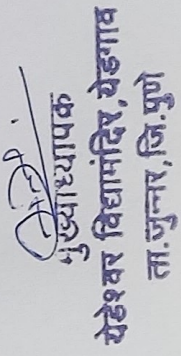 मुख्याध्यापक
येडेश्वर विद्यामंदिर, येडगाव
ता.जुन्नर, जि.पुणे